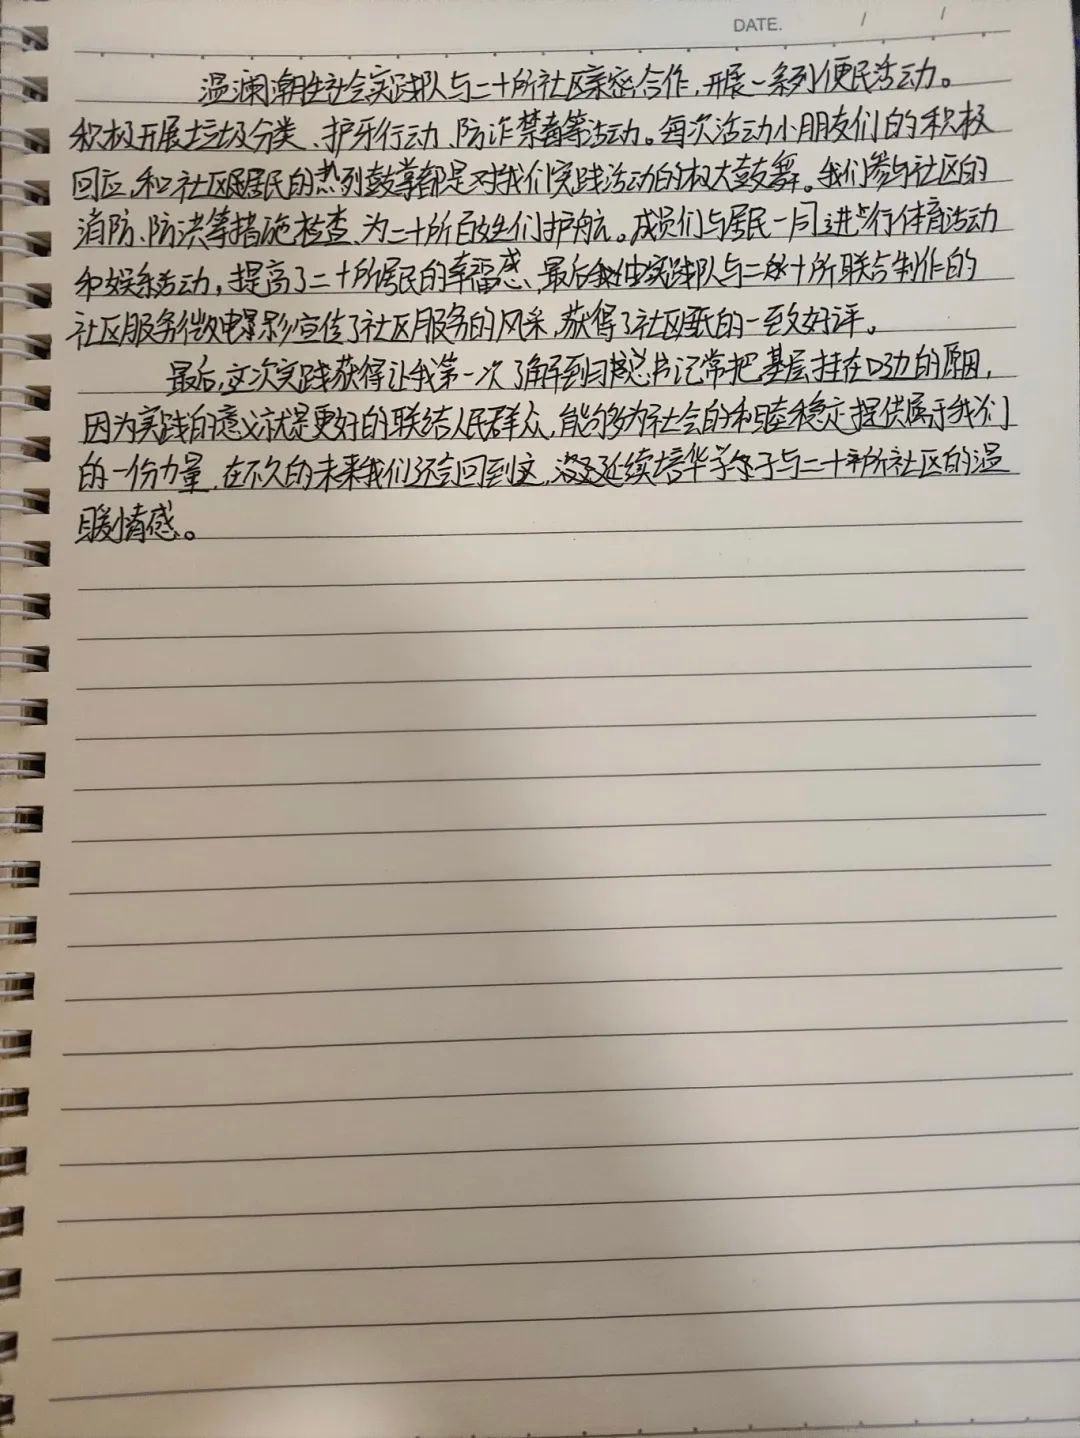 DATE. / /
温澜潮生社会实践队与二十所社区亲密合作,开展一系列便民活动。
积极开展垃圾分类、护牙行动、防诈禁毒等活动。每次活动小朋友们的积极
回应,和社区居民的热烈鼓掌都是对我们实践活动的极大鼓舞。我们参与社区的
消防、防洪等措施检查,为二十所百姓们护航。成员们与居民一同进行体育活动
和娱乐活动,提高了二十所居民的幸福感、最后由实践队与二十所联合制作的
社区服务微电影宣传了社区服务的风采,获得了社区的一致好评。
最后,这次实践获得让我第一次了解到习总书记常把基层挂在口边的原因,
因为实践的意义就是更好的联结人民群众,能够为社会的和睦稳定提供属于我们
的一份力量,在不久的未来我们还会回到这,延续培华学子与二十所社区的温
暖情感。